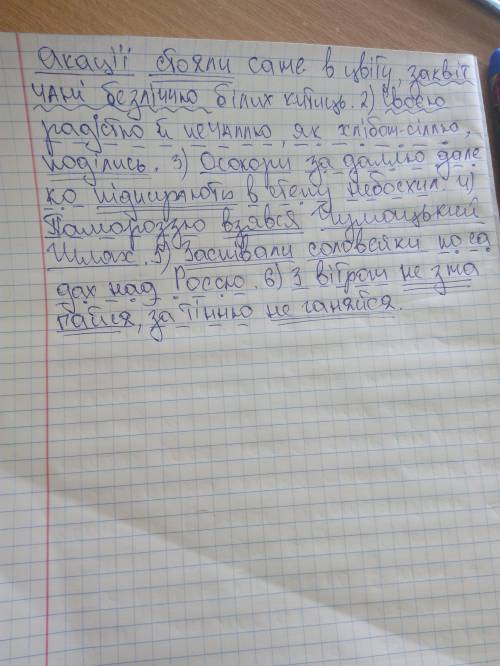 Акації стояли саме в цвіту, заквіт
чані безліччю білих китиць. 2) Своєю
радістю й печаллю, як хлібом-сіллю,
поділись. 3) Осокори за даллю дале
ко підпирають в степу небосхил. 4)
Памороззю взявся Чумацький
Шлях. 5) Заспівали соловейки по са
дах над Россю. 6) З вітром не зма
гайся, за тінню не ганяйся.